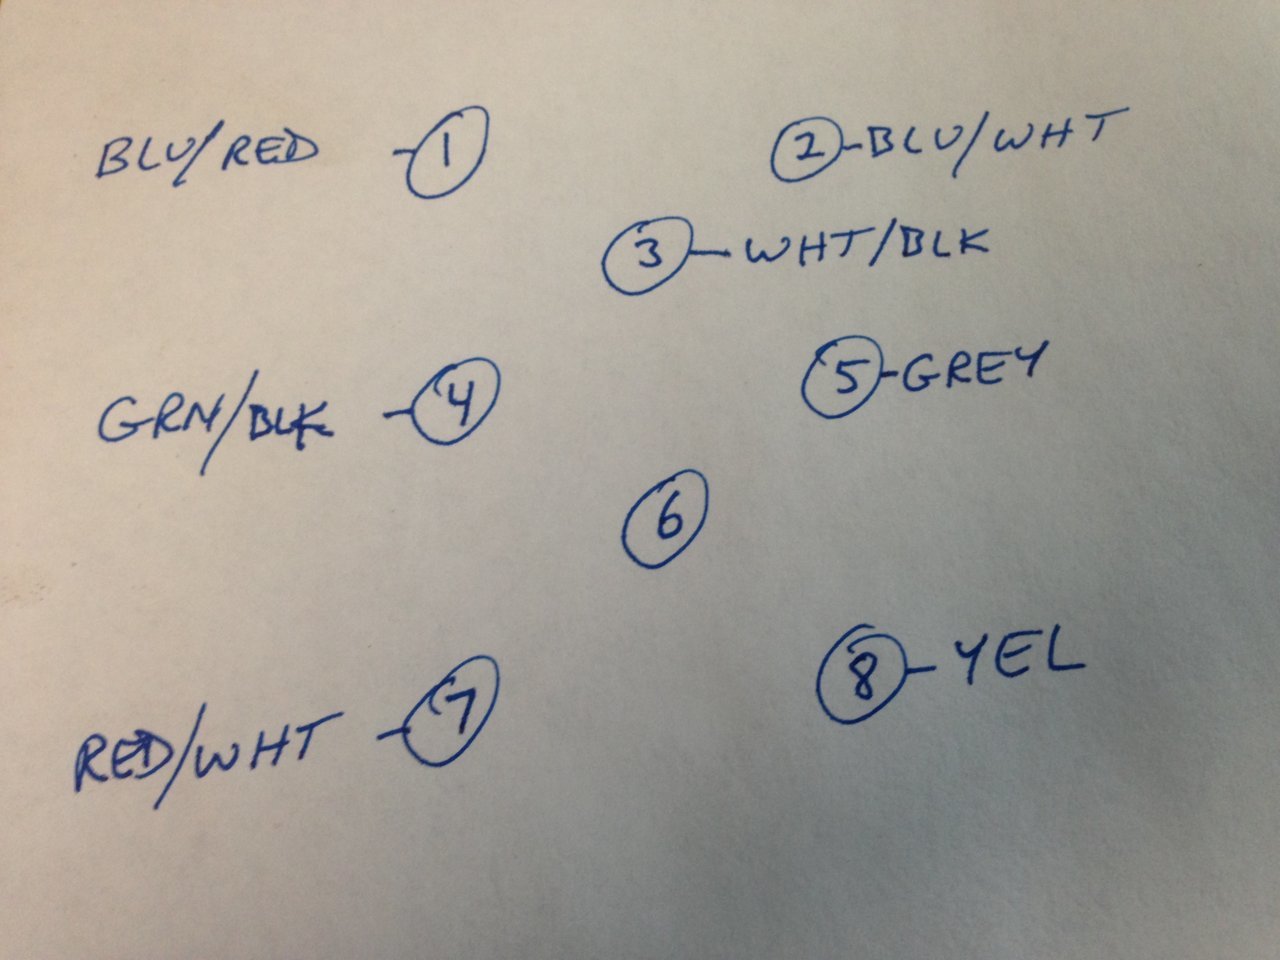 BLU/RED -1 2-BLU/WHT
3-WHT/BLK
GRN/BLK -4 5-GREY
6
RED/WHT -7 8-YEL